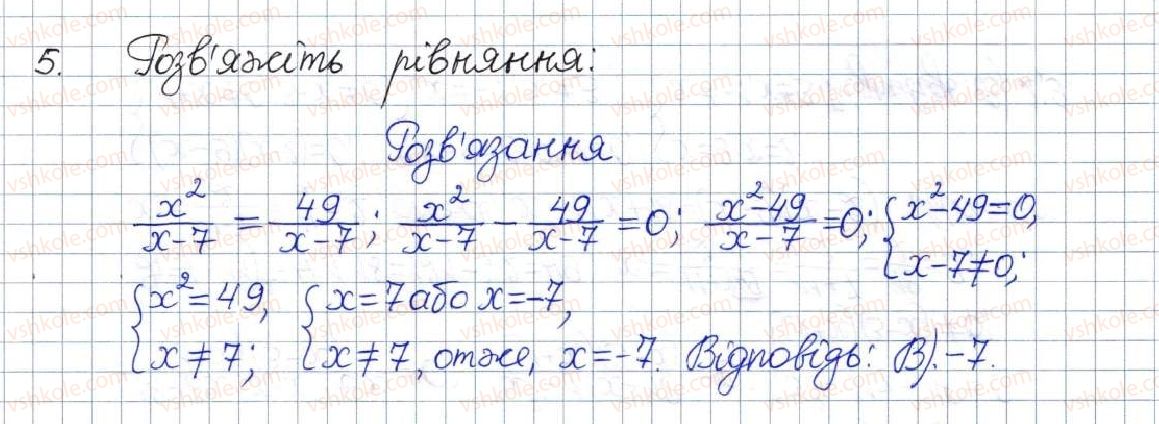 5. Розв'яжіть рівняння:
Розв'язання
x²/(x-7) = 49/(x-7); x²/(x-7) - 49/(x-7) = 0; (x²-49)/(x-7) = 0; { x²-49=0, x-7≠0;
{ x²=49, x≠7; { x=7 або x=-7, x≠7, отже, x=-7. Відповідь: В). -7.